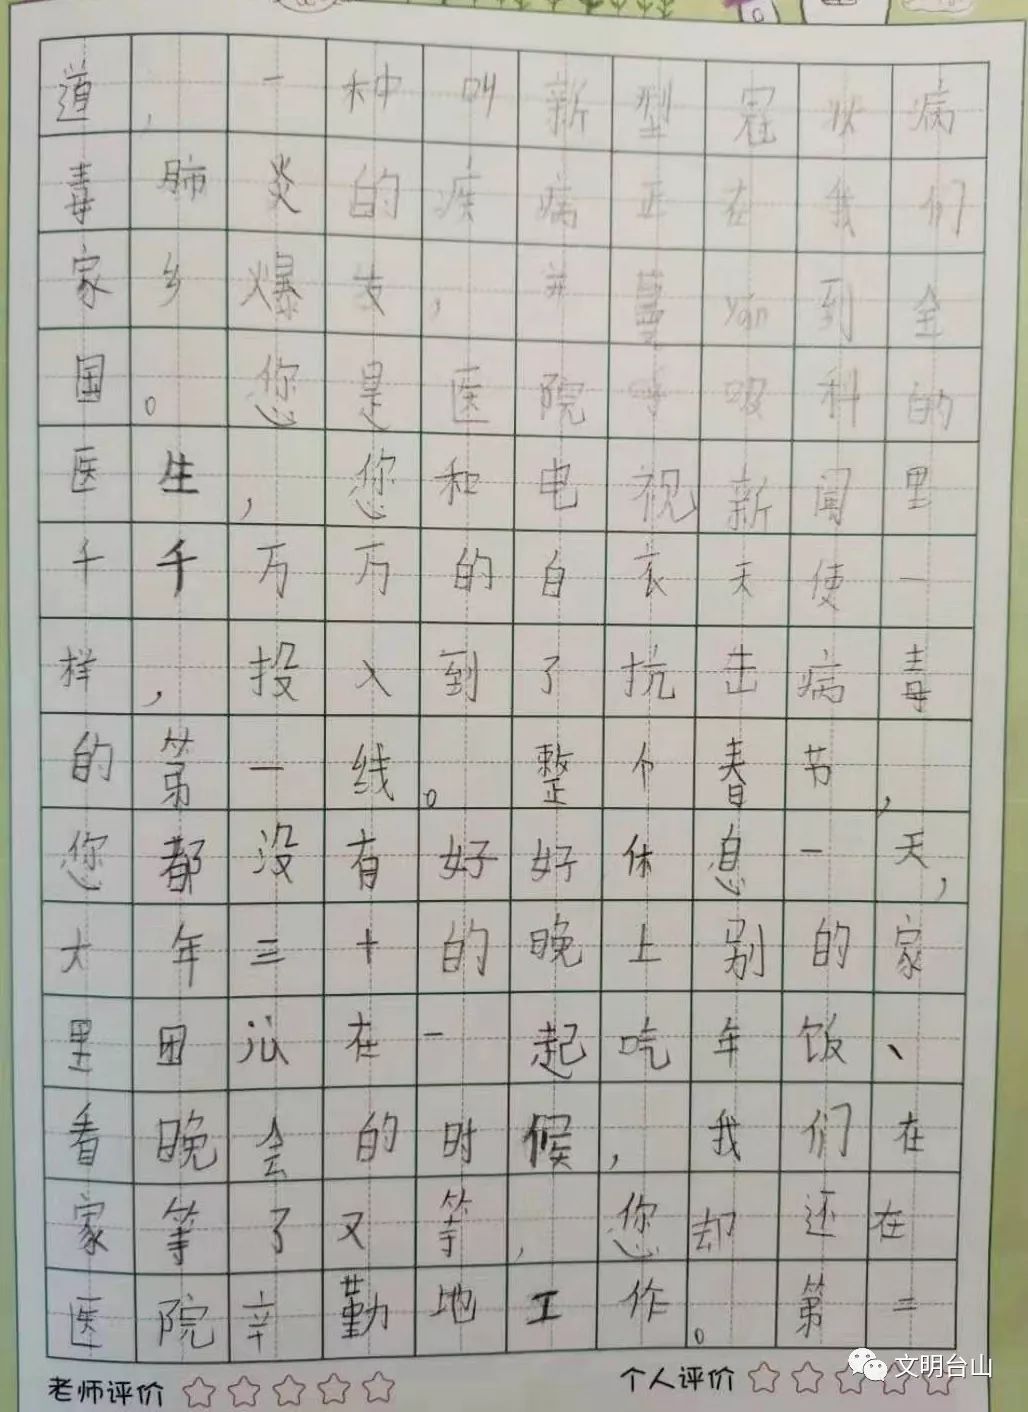 道，一种叫新型冠状病
毒肺炎的疾病正在我们
家乡爆发，并蔓yán到全
国。您是医院呼吸科的
医生，您和电视新闻里
千千万万的白衣天使一
样，投入到了抗击病毒
的第一线。整个春节，
您都没有好好休息一天，
大年三十的晚上别的家
里团 在一起吃年饭、
看晚会的时候，我们在
家等了又等，您却还在
医院辛勤地工作。第二
老师评价
个人评价
文明台山